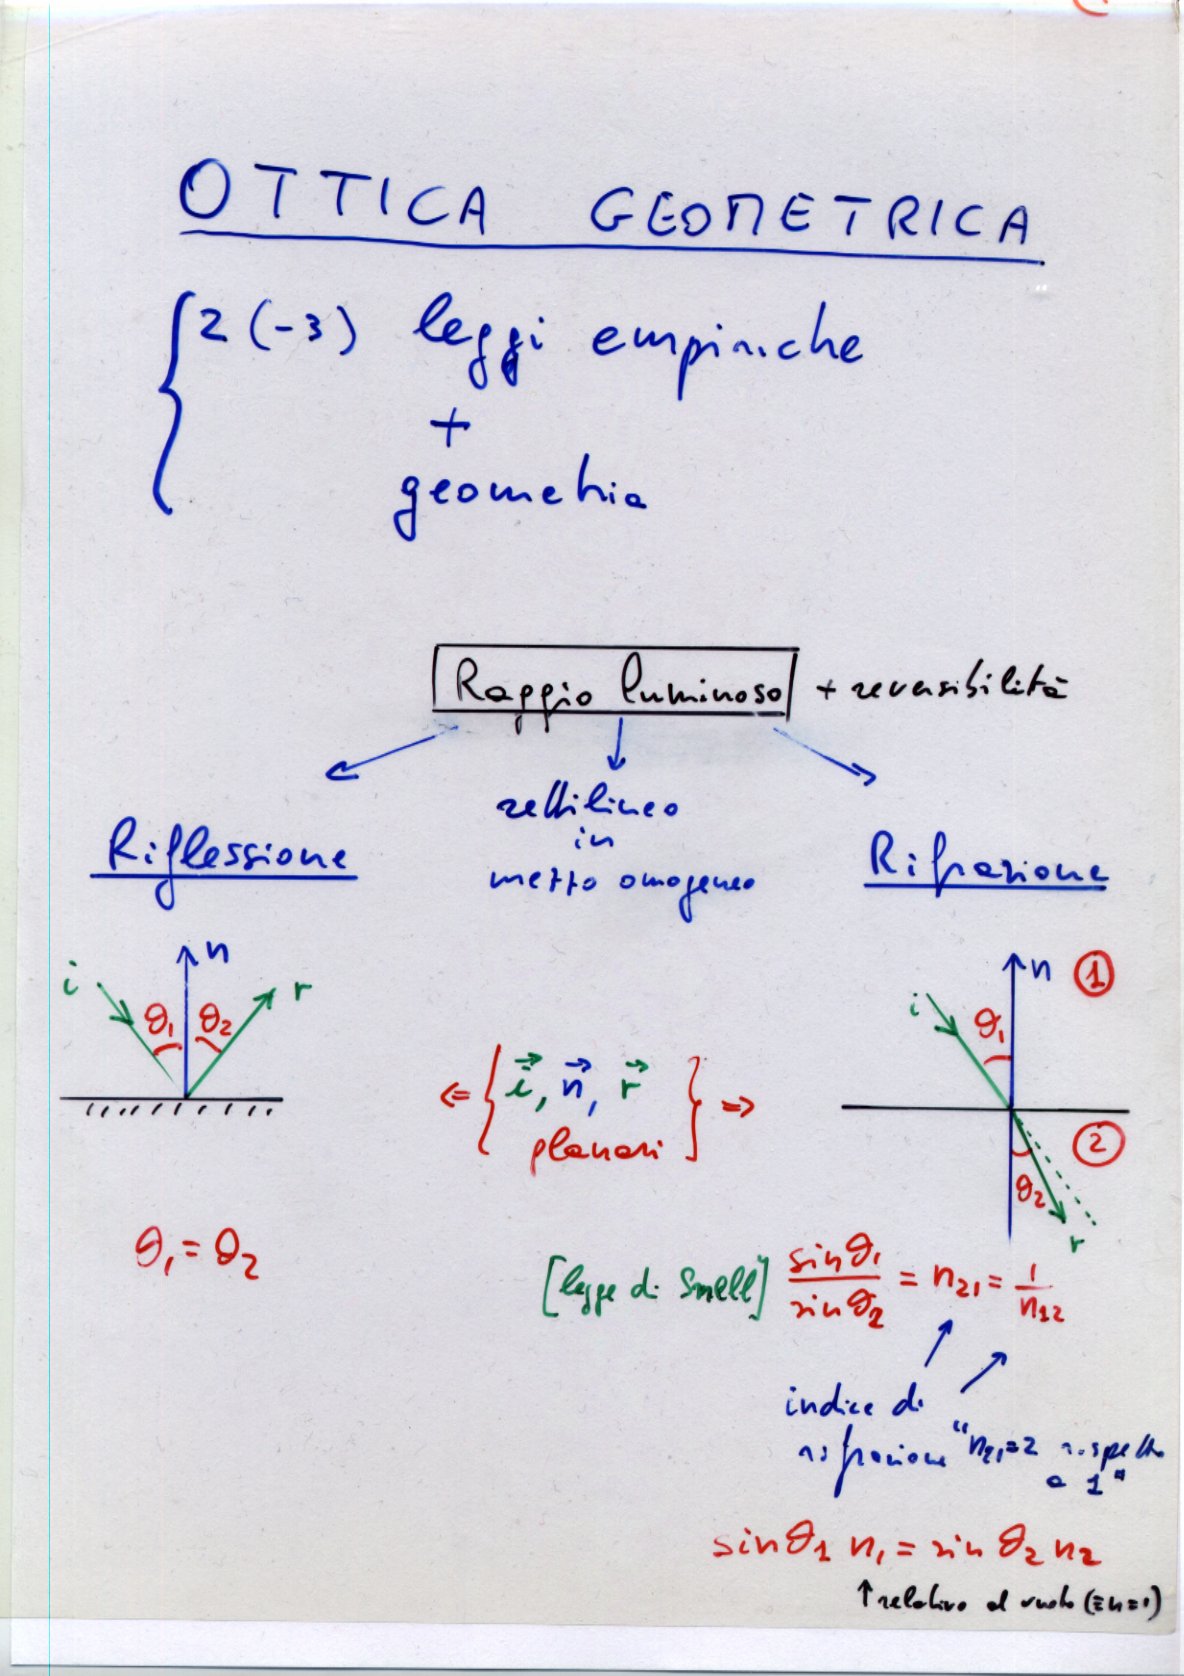 OTTICA GEOMETRICA
2 (-3) leggi empiriche
+
geometria
Raggio luminoso + reversibilità
rettilineo
in
mezzo omogeneo
Riflessione
Rifrazione
n
i
r
θ₁ θ₂
n
1
i
θ₁
2
θ₂
r
⇐ { i⃗, n⃗, r⃗ } ⇒
planari
θ₁ = θ₂
[legge di Snell] sin θ₁ / sin θ₂ = n₂₁ = 1 / n₁₂
indice di
rifrazione "n₂₁ = 2 rispetto
a 1"
sin θ₁ n₁ = sin θ₂ n₂
↑ relativo al vuoto (≡ n = 1)